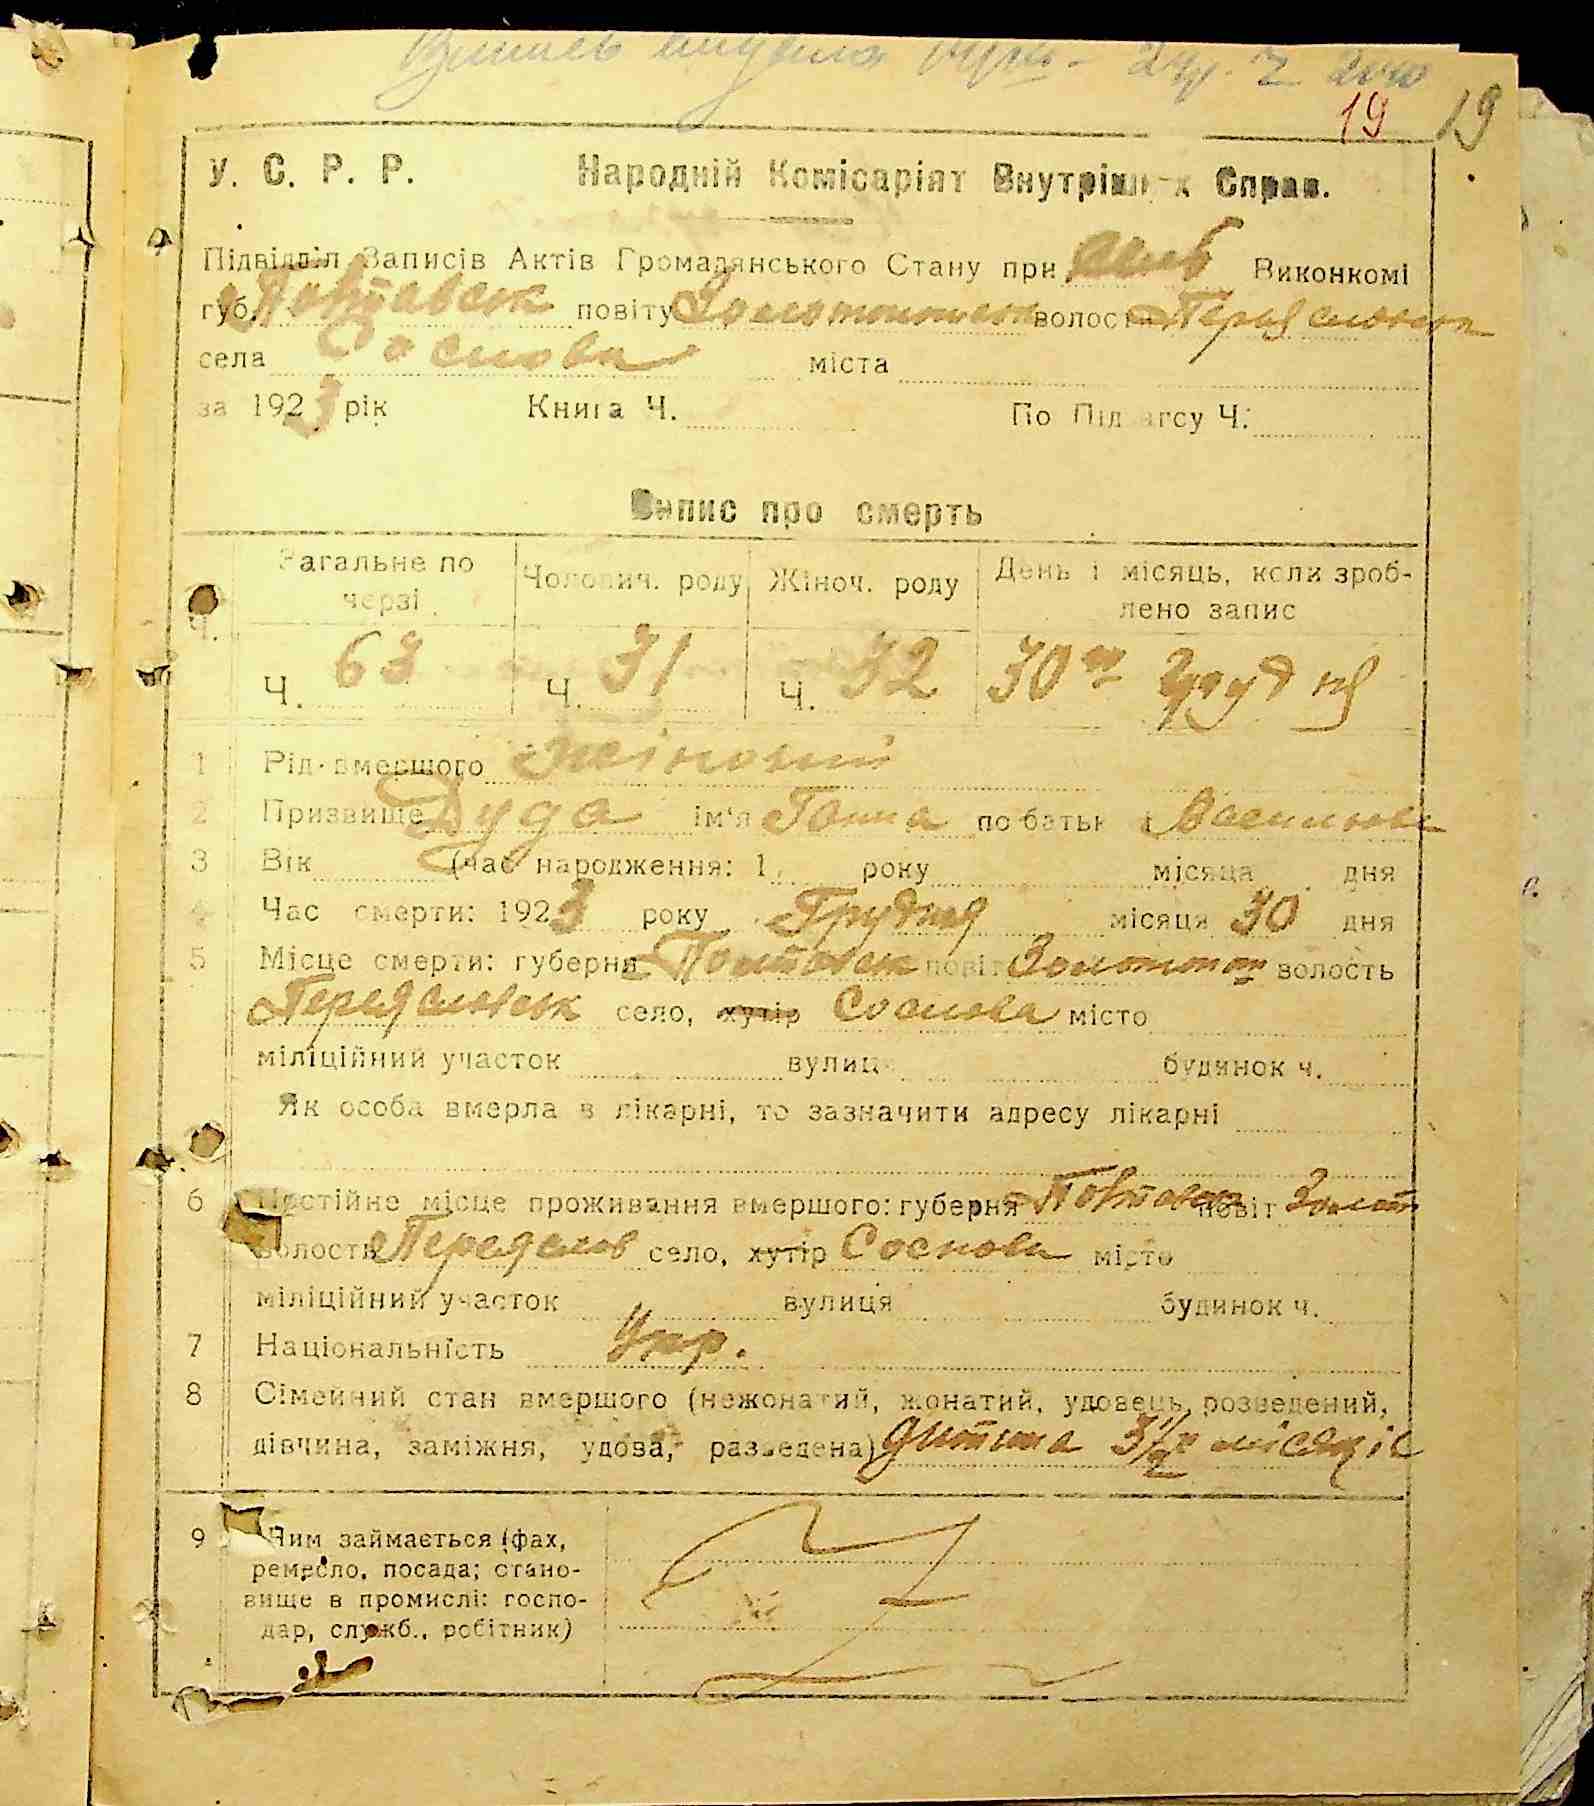 19 19
У. С. Р. Р. Народній Комісаріят Внутрішніх Справ.
Підвідділ Записів Актів Громадянського Стану при Виконкомі
губ. Полтавськ повіту Золотоніськ волости
села Соснова міста
за 1923 рік Книга Ч. По Підзагсу Ч.
Запис про смерть
Ч. Загальне по черзі Чолович. роду Жіноч. роду День і місяць, коли зроб-
лено запис
Ч. 63 Ч. 31 Ч. 32 30го Грудня
1 Рід вмершого Жіночий
2 Призвище Дуда ім'я Ганна по батькові
3 Вік (час народження: 1 року місяця дня
4 Час смерти: 1923 року Грудня місяця 30 дня
5 Місце смерти: губерня Полтавськ повіт Золотонош волость
село, хутір Соснова місто
міліційний участок вулиця будинок ч.
Як особа вмерла в лікарні, то зазначити адресу лікарні
6 Постійне місце проживання вмершого: губерня Полтавськ повіт Золот
волости село, хутір Соснова місто
міліційний участок вулиця будинок ч.
7 Національність Укр.
8 Сімейний стан вмершого (нежонатий, жонатий, удовець, розведений,
дівчина, заміжня, удова, разведена) дитина 3½ місяців
9 Чим займається (фах,
ремесло, посада; стано-
вище в промислі: госпо-
дар, служб., робітник)